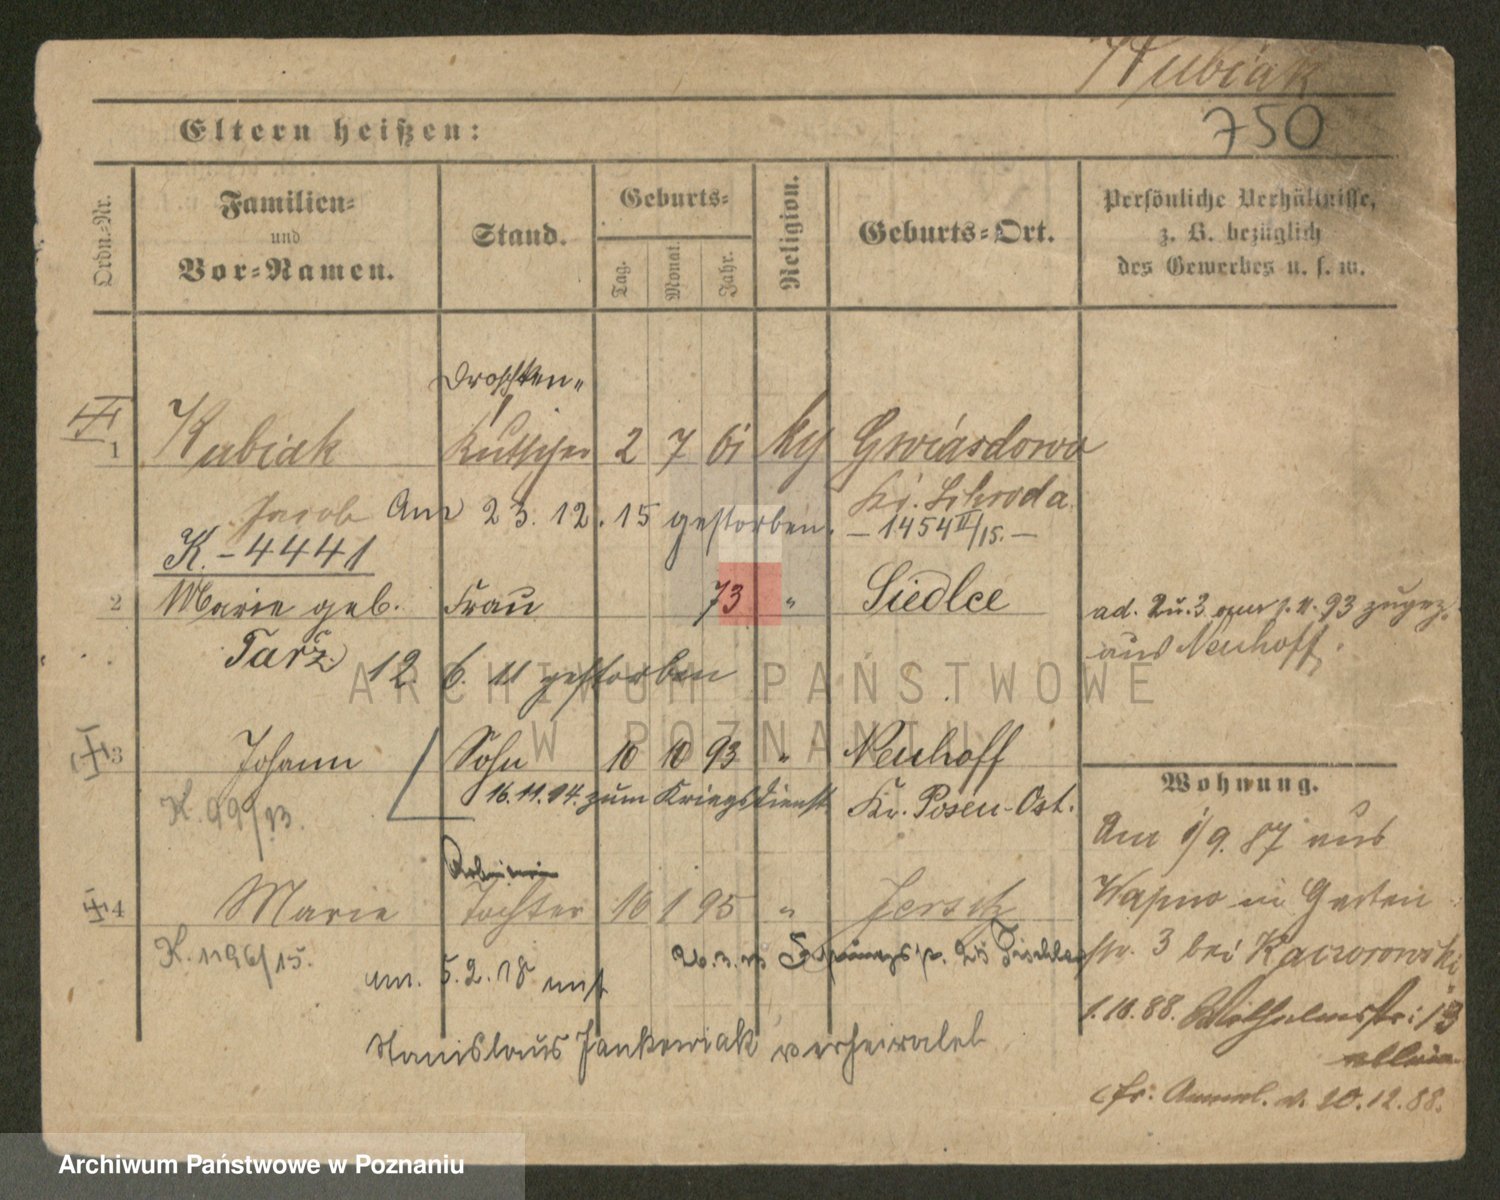 Kubiak
750
Eltern heißen:
Ordn.-Nr.
Familien-
und
Vor-Namen.
Stand.
Geburts-
Tag.
Monat.
Jahr.
Religion.
Geburts-Ort.
Persönliche Verhältnisse,
z. B. bezüglich
des Gewerbes u. s. w.
Droschken-
1 Kubiak Kutscher 2 7 61 kg Gwiasdowo
Jacob Am 23. 12. 15 gestorben. Kr. Schroda
K.-4441 – 1454 II/15. –
2 Marie geb. Frau 73 " Siedlce
Tarz. 12 6. 11 gestorben
ad. 2 u. 3 93 zugez.
aus Neuhoff.
3 Johann Sohn 10 10 93 " Neuhoff
16.11.14. zum Kriegsdienst Kr. Posen-Ost.
K. 99/13.
Wohnung.
Am 1/9. 87 aus
Wapno in Garten
str. 3 bei Kaczorowski
1.10.88. Wilhelmstr: 13
allein
fr. Anmel. v. 20.12.88.
Arbeiterin
4 Marie Tochter 16 1 95 " Jersitz
K. 1196/15.
am. 5.2.18 mit
Stanislaus Jankowiak verheiratet
ARCHIWUM PAŃSTWOWE
W POZNANIU
Archiwum Państwowe w Poznaniu